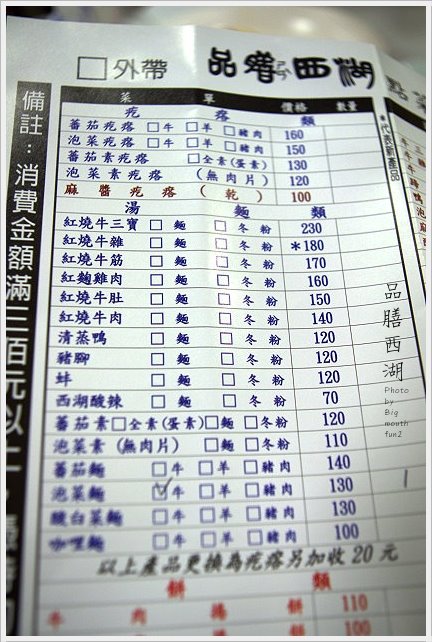 □外帶
品膳西湖
備註：消費金額滿三佰元以上
菜單 價格 數量
疙瘩類
蕃茄疙瘩 □牛 □羊 □豬肉 160
泡菜疙瘩 □牛 □羊 □豬肉 150
蕃茄素疙瘩 □全素(蛋素) 130
泡菜素疙瘩 (無肉片) 120
麻醬疙瘩(乾) 100
湯麵類
紅燒牛三寶 □麵 □冬粉 230
紅燒牛雜 □麵 □冬粉 *180
紅燒牛筋 □麵 □冬粉 170
紅麴雞肉 □麵 □冬粉 160
紅燒牛肚 □麵 □冬粉 150
紅燒牛肉 □麵 □冬粉 140
清蒸鴨 □麵 □冬粉 120
豬腳 □麵 □冬粉 120
蚌 □麵 □冬粉 120
西湖酸辣 □麵 □冬粉 70
蕃茄素□全素(蛋素)□麵 □冬粉 120
泡菜素(無肉片) □麵 □冬粉 110
蕃茄麵 □牛 □羊 □豬肉 140
泡菜麵 ☑牛 □羊 □豬肉 130 1
酸白菜麵 □牛 □羊 □豬肉 130
咖哩麵 □牛 □羊 □豬肉 100
以上產品更換為疙瘩另加收20元
餅類
牛肉捲餅 110
100
*代表新產品
點菜
品膳西湖
Photo
by
Big
mouth
fun2